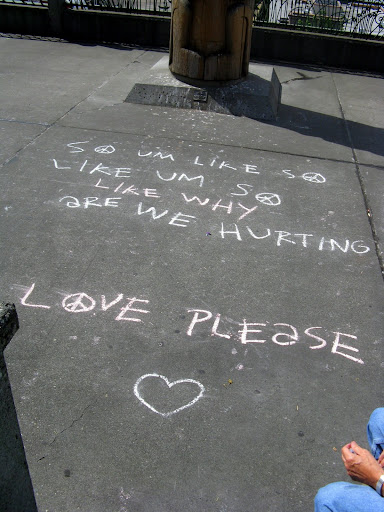 SO UM LIKE SO
LIKE UM SO
LIKE WHY
ARE WE HURTING
LOVE PLEASE